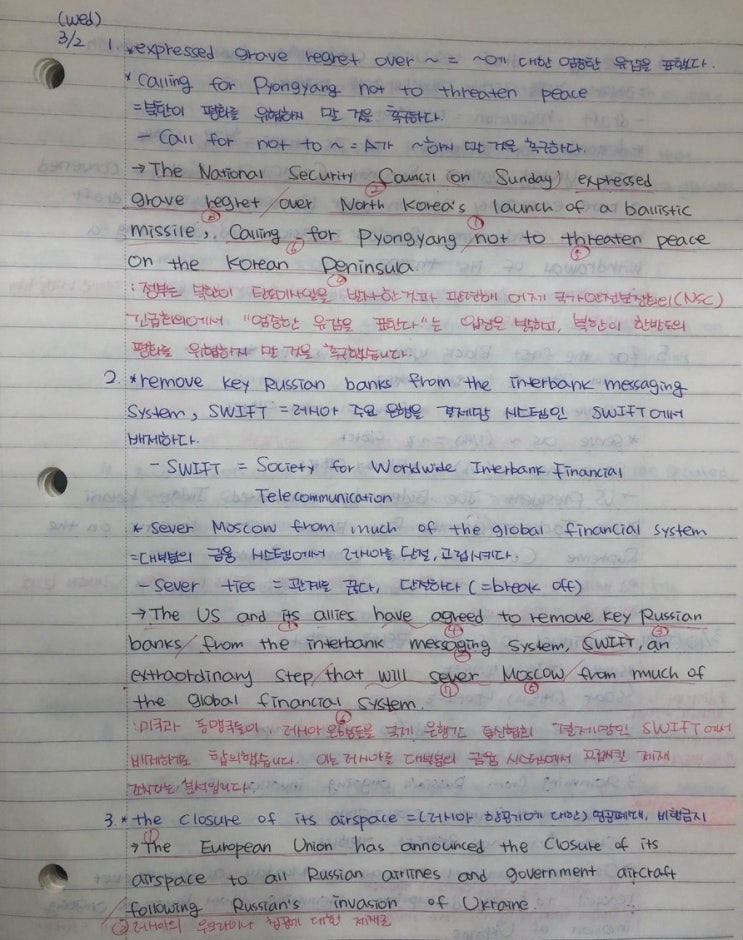 (wed)
3/2 1. *expressed grave regret over ~ = ~에 대한 엄중한 유감을 표했다.
* Calling for Pyongyang not to threaten peace
=북한이 평화를 위협하지 말 것을 촉구하다.
- Call for not to ~ = A가 ~하지 말 것을 촉구하다.
→ The National Security Council (on Sunday) expressed
②
grave regret / over North Korea's launch of a ballistic
①
missile, Calling for Pyongyang / not to threaten peace
on the Korean Peninsula.
:정부는 북한이 탄도미사일을 발사한 것과 관련해 어제 국가안전보장회의(NSC)
긴급회의에서 "엄중한 유감을 표한다"는 입장을 밝히고, 북한이 한반도의
평화를 위협하지 말 것을 촉구했습니다.
2. *remove key Russian banks from the interbank messaging
System, SWIFT = 러시아 주요 은행을 결제망 시스템인 SWIFT에서
배제하다.
- SWIFT = Society for Worldwide Interbank Financial
Telecommunication
* Sever Moscow from much of the global financial system
=대부분의 금융 시스템에서 러시아를 단절, 고립시키다.
- Sever ties = 관계를 끊다, 단절하다 (=break off)
→ The US and its allies have agreed to remove key Russian
① ④ ③
banks / from the interbank messaging System, SWIFT, an
extraordinary step / that will sever Moscow / from much of
⑦ ⑤
the global financial system.
⑥
:미국과 동맹국들이 러시아 은행들을 국제 은행간 통신협회 결제망인 SWIFT에서
배제하기로 합의했습니다. 이는 러시아를 대부분의 금융 시스템에서 고립시킬 제재
3. * the closure of its airspace =(러시아 항공기에 대한) 영공폐쇄, 비행금지
①
→ The European Union has announced the Closure of its
airspace to all Russian airlines and government aircraft
/ following Russian's invasion of Ukraine.
② 러시아의 우크라이나 침공에 대한 제재로